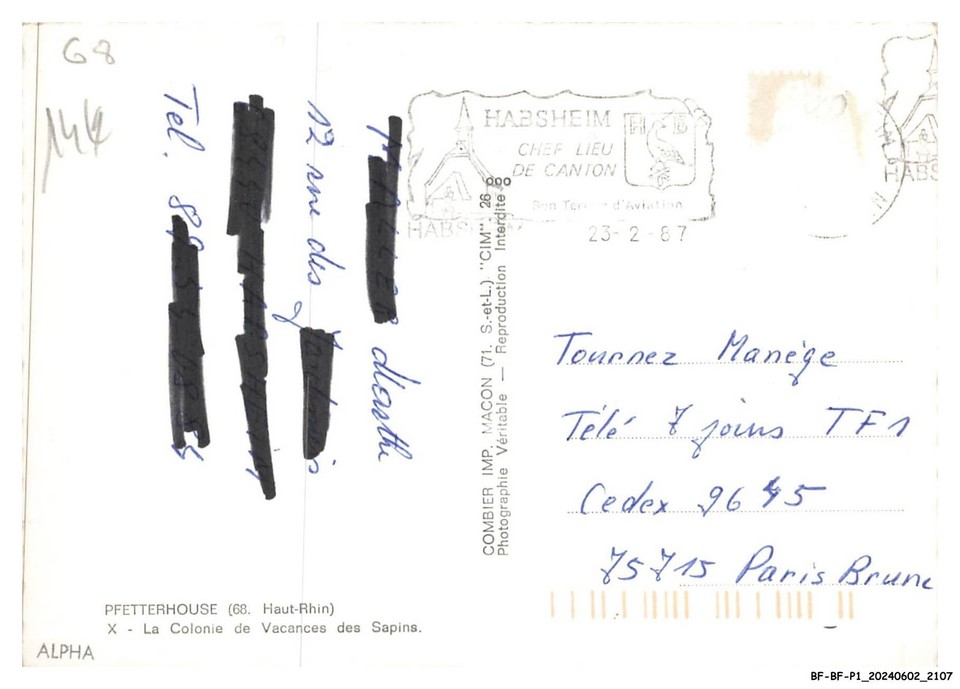 68
144
HABSHEIM
CHEF LIEU
DE CANTON
Son Terrain d'Aviation
HABSHEIM
23-2-87
HABS
12 rue des
Tel. 89
COMBIER IMP. MACON (71. S.-et-L.) "CIM"
Photographie Véritable — Reproduction Interdite
26
Tournez Manège
Télé 7 jours TF1
Cedex 9645
75715 Paris Brune
PFETTERHOUSE (68. Haut-Rhin)
X - La Colonie de Vacances des Sapins.
ALPHA
BF-BF-P1_20240602_2107